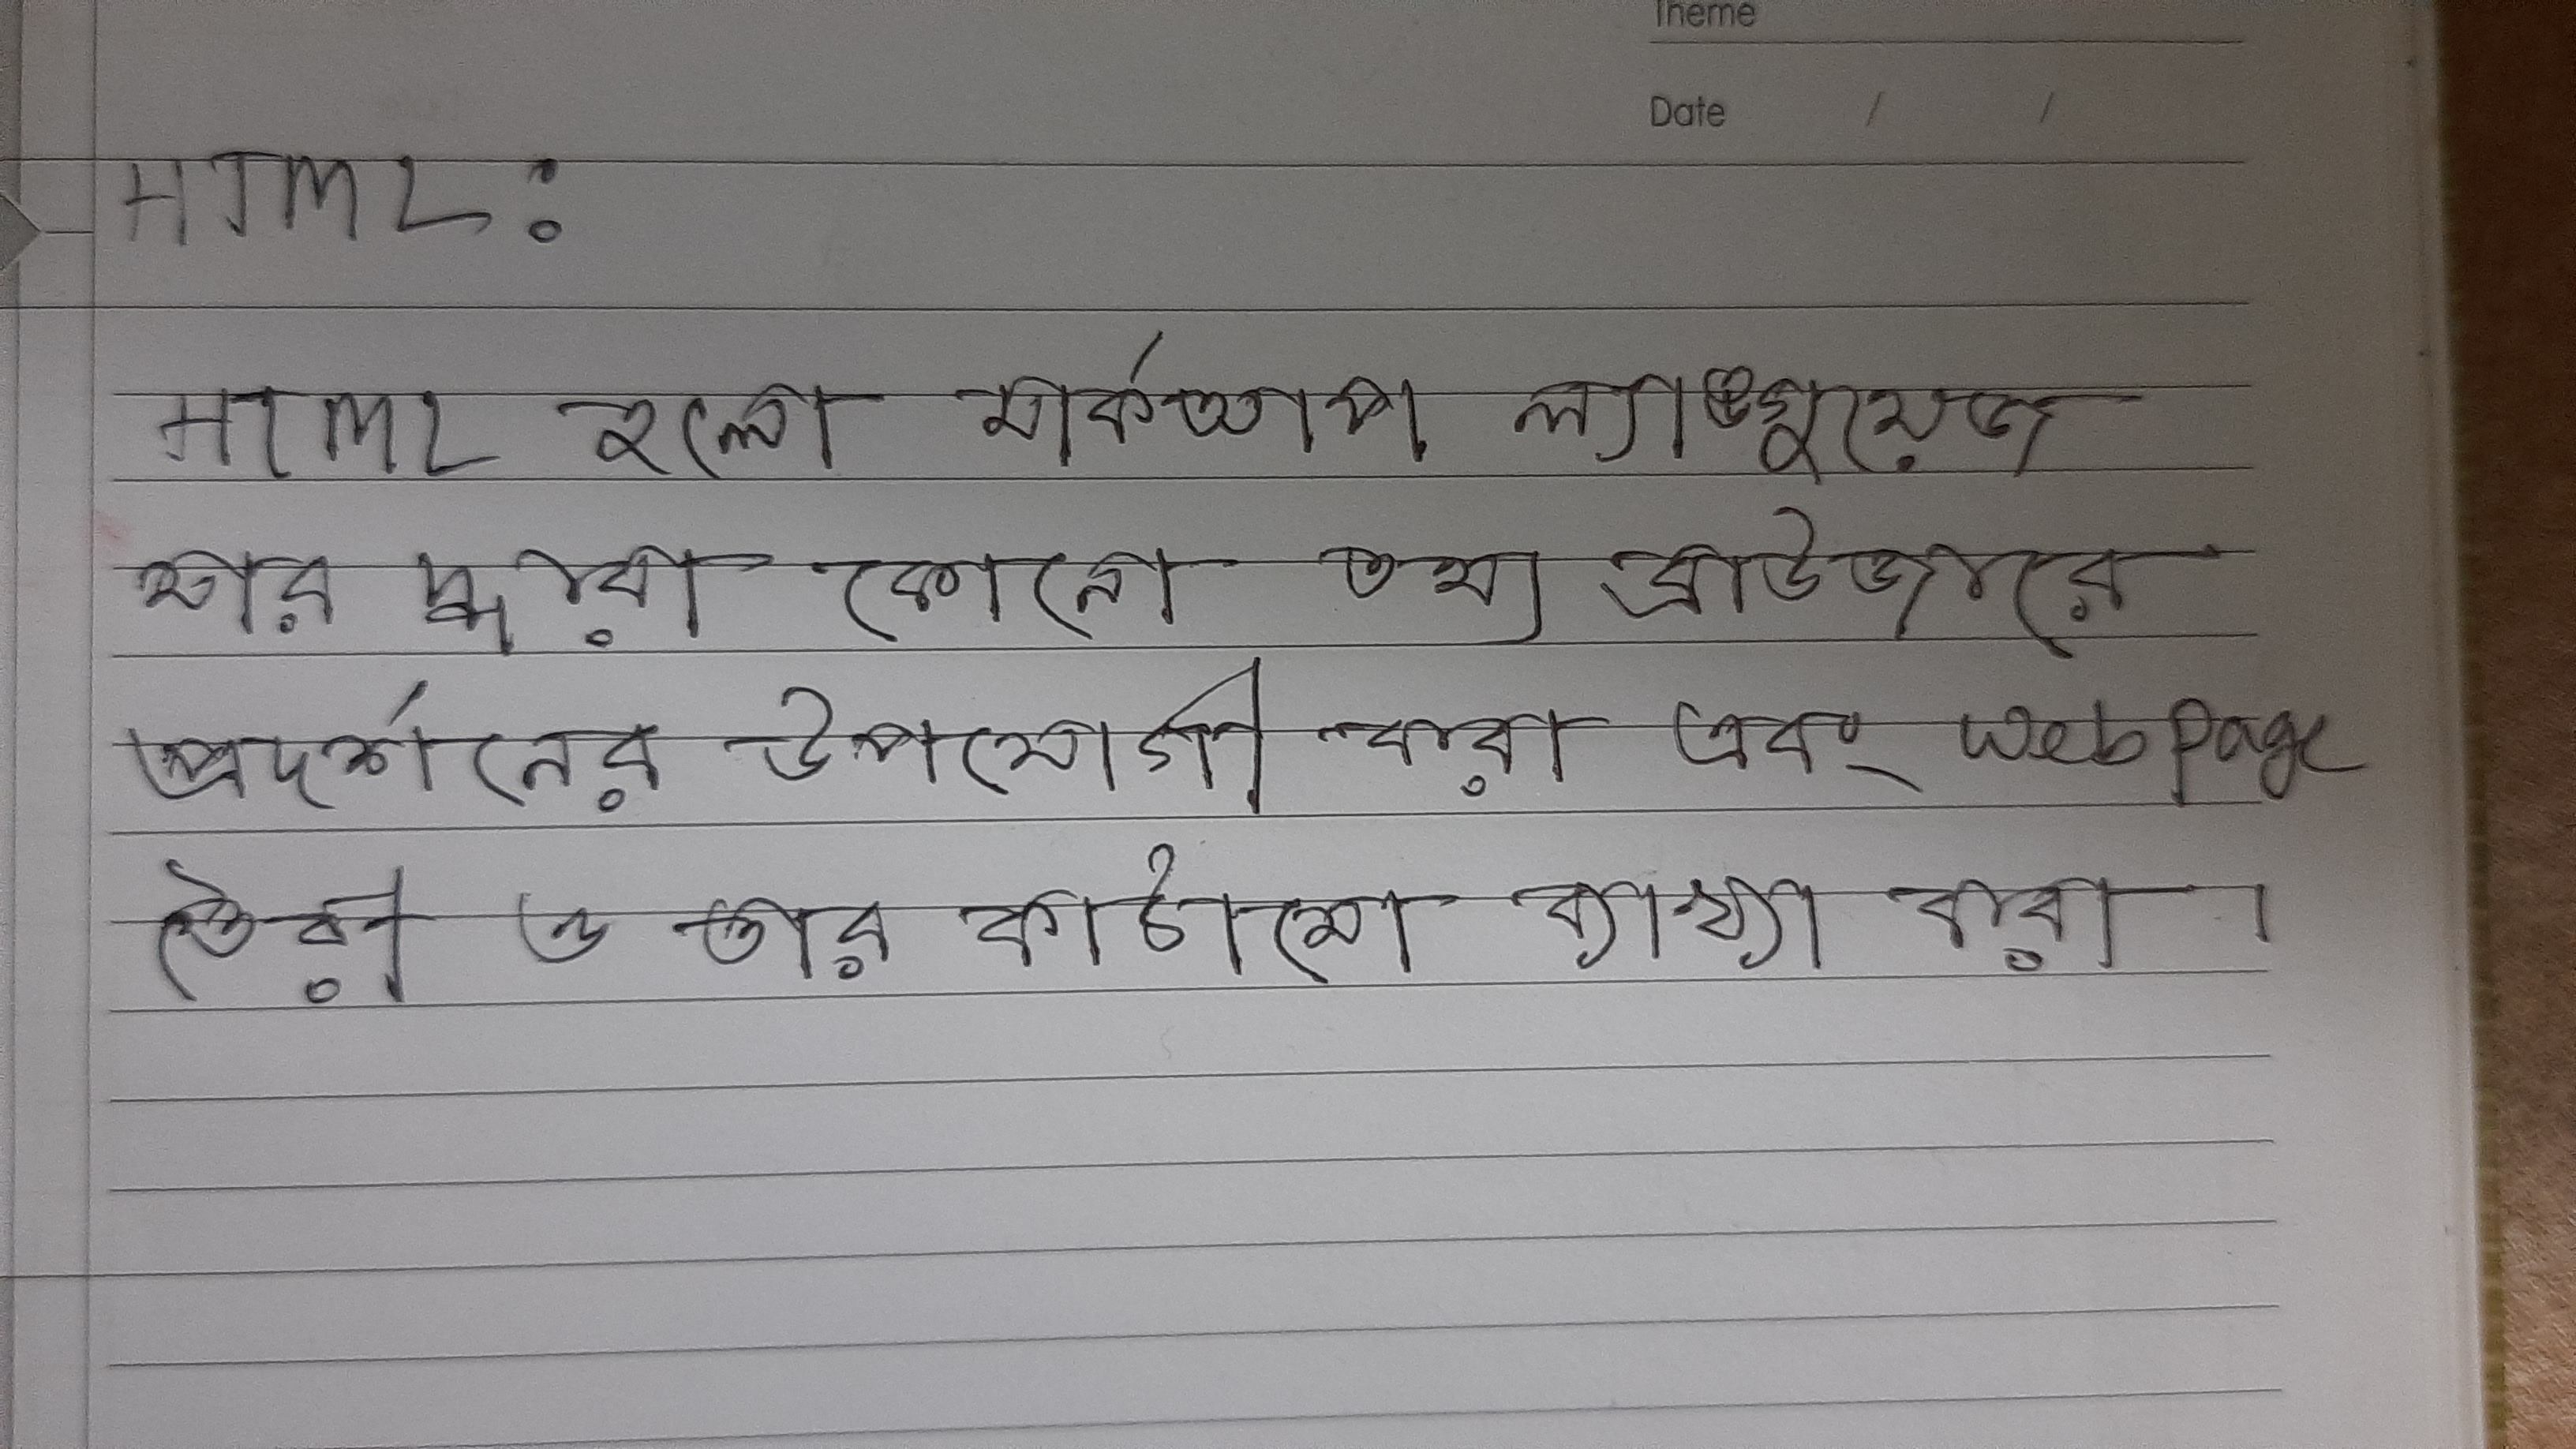 Theme
Date / /
HTML:
HTML হলো মার্কআপ ল্যাঙ্গুয়েজ
যার দ্বারা কোনো তথ্য ব্রাউজারে
প্রদর্শনের উপযোগী করা এবং web page
তৈরী ও তার কাঠামো ব্যাখ্যা করা ।